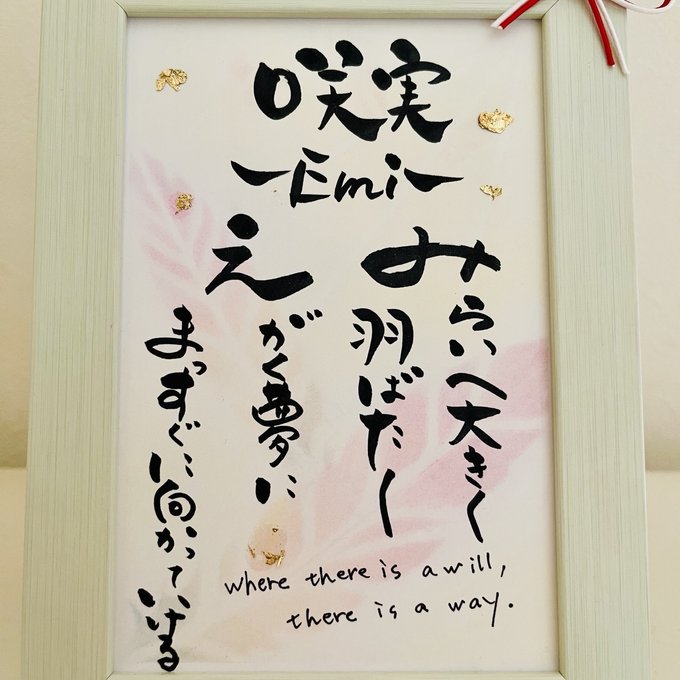 咲実
-Emi-
みらいへ大きく
羽ばたく
えがく夢に
まっすぐに向かっていける
where there is a will,
there is a way.